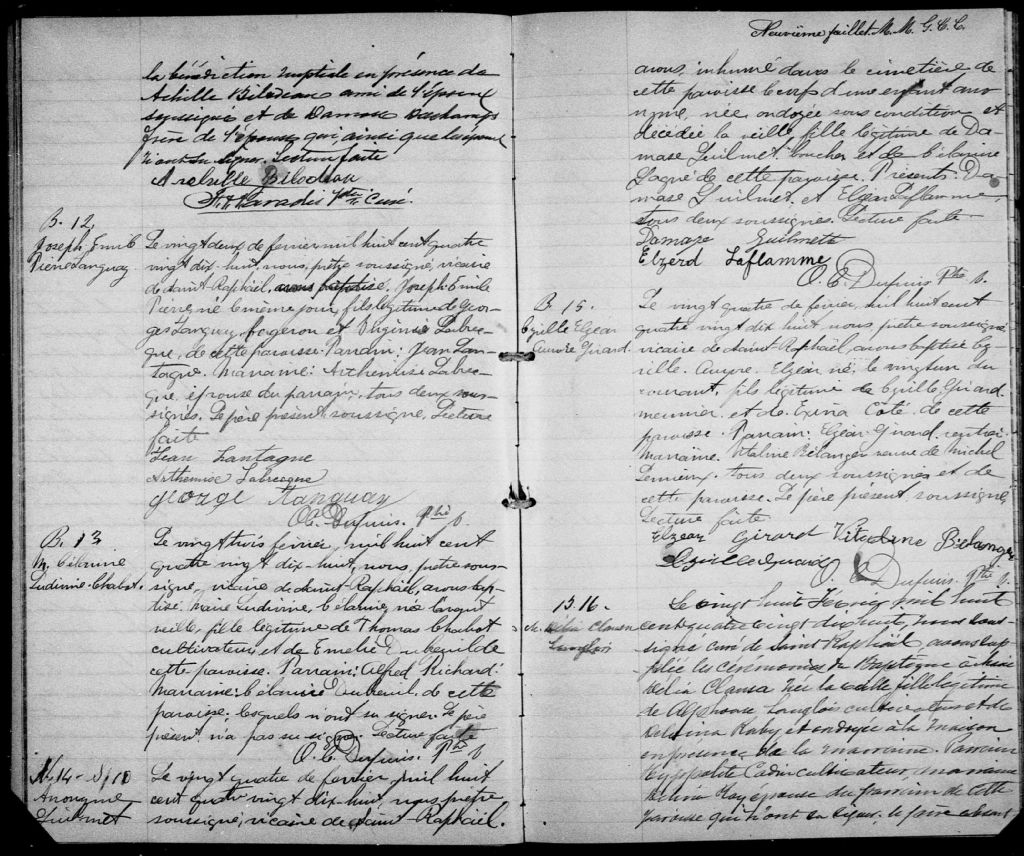 la bénédiction nuptiale en présence de
Achille Bilodeau ami de l'époux
soussigné et de Damase Deschamps
frère de l'épouse qui, ainsi que
n'ont su signer. Lecture faite
Bilodeau
Paradis Ptre Curé.
B. 12.
Joseph, Emile
Pierre Tanguay
Le vingt deux de février mil huit cent quatre
vingt dix-huit, nous, prêtre soussigné, vicaire
de Saint Raphaël, avons baptisé, Joseph Emile
Pierre, né le même jour, fils légitime de Geor-
ges Tanguay, forgeron et Virginie Labrec-
que, de cette paroisse. Parrain: Jean Lan-
tagne. Marraine: Arthemise Labrec-
que, épouse du parrain, tous deux sous-
signés. Le père présent, soussigné, Lecture
faite
Jean Lantagne
Arthemise Labrecque
George Tanguay
O. E. Dupuis. Ptre V.
B. 13
M. Célanire
Ludivine Chabot.
Le vingt trois février, mil huit cent
quatre vingt dix-huit, nous, prêtre sous-
signé, vicaire de Saint Raphaël, avons bap-
tisé, Marie Ludivine, Célanire, née l'avant
veille, fille légitime de Thomas Chabot
cultivateur, et de Emelie Dubeuil de
cette paroisse. Parrain: Alfred Richard.
Marraine: Célanire Dubeuil, de cette
paroisse, lesquels n'ont su signer. Le père
présent, n'a pas su signer. Lecture faite
O. E. Dupuis. Ptre V.
N. 14 - S. 10
Anonyme
Guilmet
Le vingt quatre de février, mil huit
cent quatre vingt dix-huit, nous prêtre
soussigné, vicaire de Saint-Raphaël.
Neuvième feuillet. M. M. G. C. C.
avons, inhumé dans le cimetière de
cette paroisse le corps d'une enfant ano-
nyme, née, ondoyée sous condition et
décédée la veille, fille légitime de Da-
mase Guilmet, boucher et de Célanire
Gagné de cette paroisse. Présents: Da-
mase Guilmet, et Elzéar Laflamme,
tous deux soussignés. Lecture faite
Damase Guilmette
Elzérd Laflamme
O. E. Dupuis Ptre V.
B 15.
Cyrille Elzear
Girard.
Le vingt quatre de février, mil huit cent
quatre vingt dix huit, nous prêtre soussigné
vicaire de Saint Raphaël, avons baptisé Cy-
rille. Elzear né: le vingt un du
courant, fils légitime de Cyrille Girard
meunier, et de Exina Côté, de cette
paroisse. Parrain: Elzéar Girard, rentier.
Marraine. Vitaline Bélanger veuve de Michel
Lemieux. tous deux soussignés et de
cette paroisse. Le père présent, soussigné,
Lecture faite
Elzear Girard Vitaline Bélanger
O. E. Dupuis. Ptre V.
B 16.
M. Délia Clausa
Langlois
Le vingt huit Février mil huit
cent quatre vingt dix huit, nous sous-
signé curé de Saint Raphaël, avons sup-
pléé les cérémonies du Baptême à Marie
Délia Clausa née la veille fille légitime
de Alphonse Langlois cultivateur et de
Delvina Raby et ondoyée à la maison
en présence de la marraine. Parrain
Hyppolite Cadrin cultivateur, marraine
épouse du parrain de cette
paroisse qui n'ont su signer. le père absent